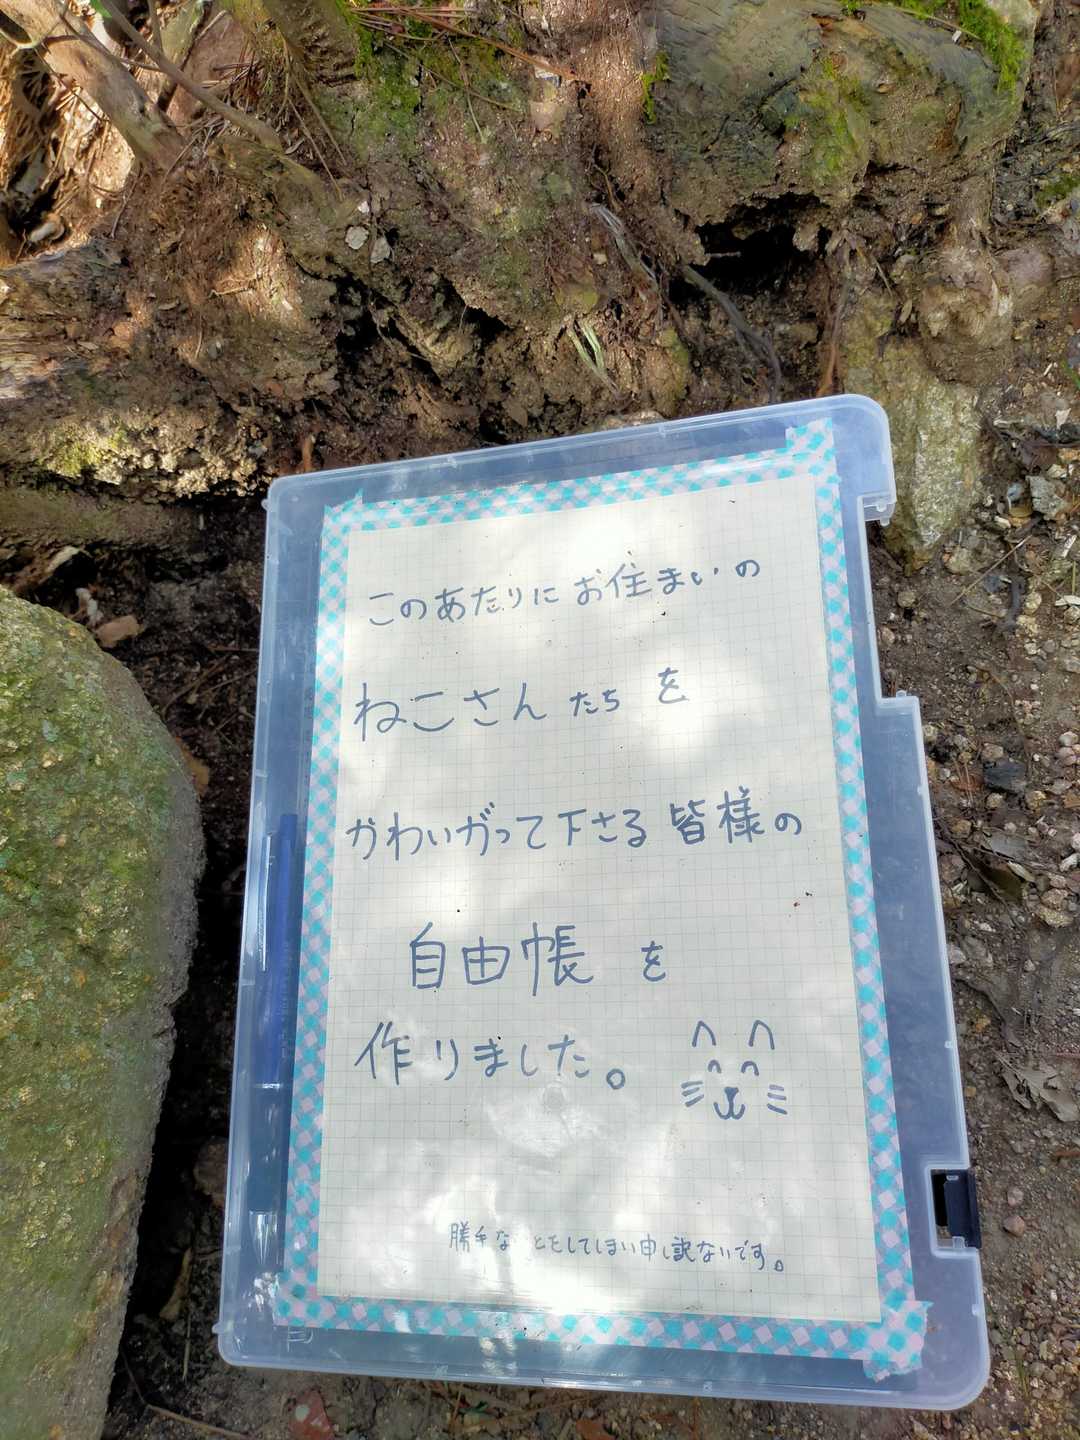 このあたりにお住まいの
ねこさんたちを
かわいがって下さる皆様の
自由帳を
作りました。
勝手なことをしてしまい申し訳ないです。